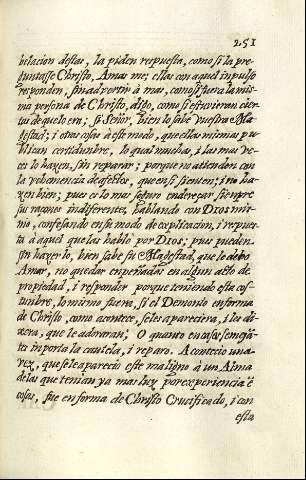 251
belacion destas, la piden respuesta, como si la pre-
guntasse Christo, Amas me; ellas con aquel inpulso
responden, sin advertir à mas, como si fuera la mis-
ma persona de Christo, digo, como si estuvieran cier-
tas de que lo era; si Señor, bien lo sabe vuestra Ma-
gestad; i otras cosas à este modo, que ellas mismas pu-
blican certidumbre, lo qual muchas, i las mas ve-
ces lo hazen, sin reparar; porque no atienden con
la vehemencia de afectos, que en si sienten; i no ha-
zen bien; pues es lo mas seguro enderezar sienpre
su razones indiferentes, hablando con Dios mis-
mo, confesando en su modo de explicacion, i repues-
ta à aquel que las hablò por Dios; pues pueden
sin hazerlo, bien sabe su Magestad, que le debo
Amar, no quedar enpeñadas en algun acto de
propiedad, i responder porque teniendo esta cos-
tunbre, lo mismo fuera, si el Demonio en forma
de Christo, como acontece, se les apareciera, i les di-
xera, que le adoraran; O quanto en casos semejan-
tes inporta la cautela, i reparo. Acontecio una
vez, que se le apareciò este maligno à un Alma
de las que tenian ya mas luz por experiencia è
cosas, fue en forma de Christo Crucificado, i con
esta